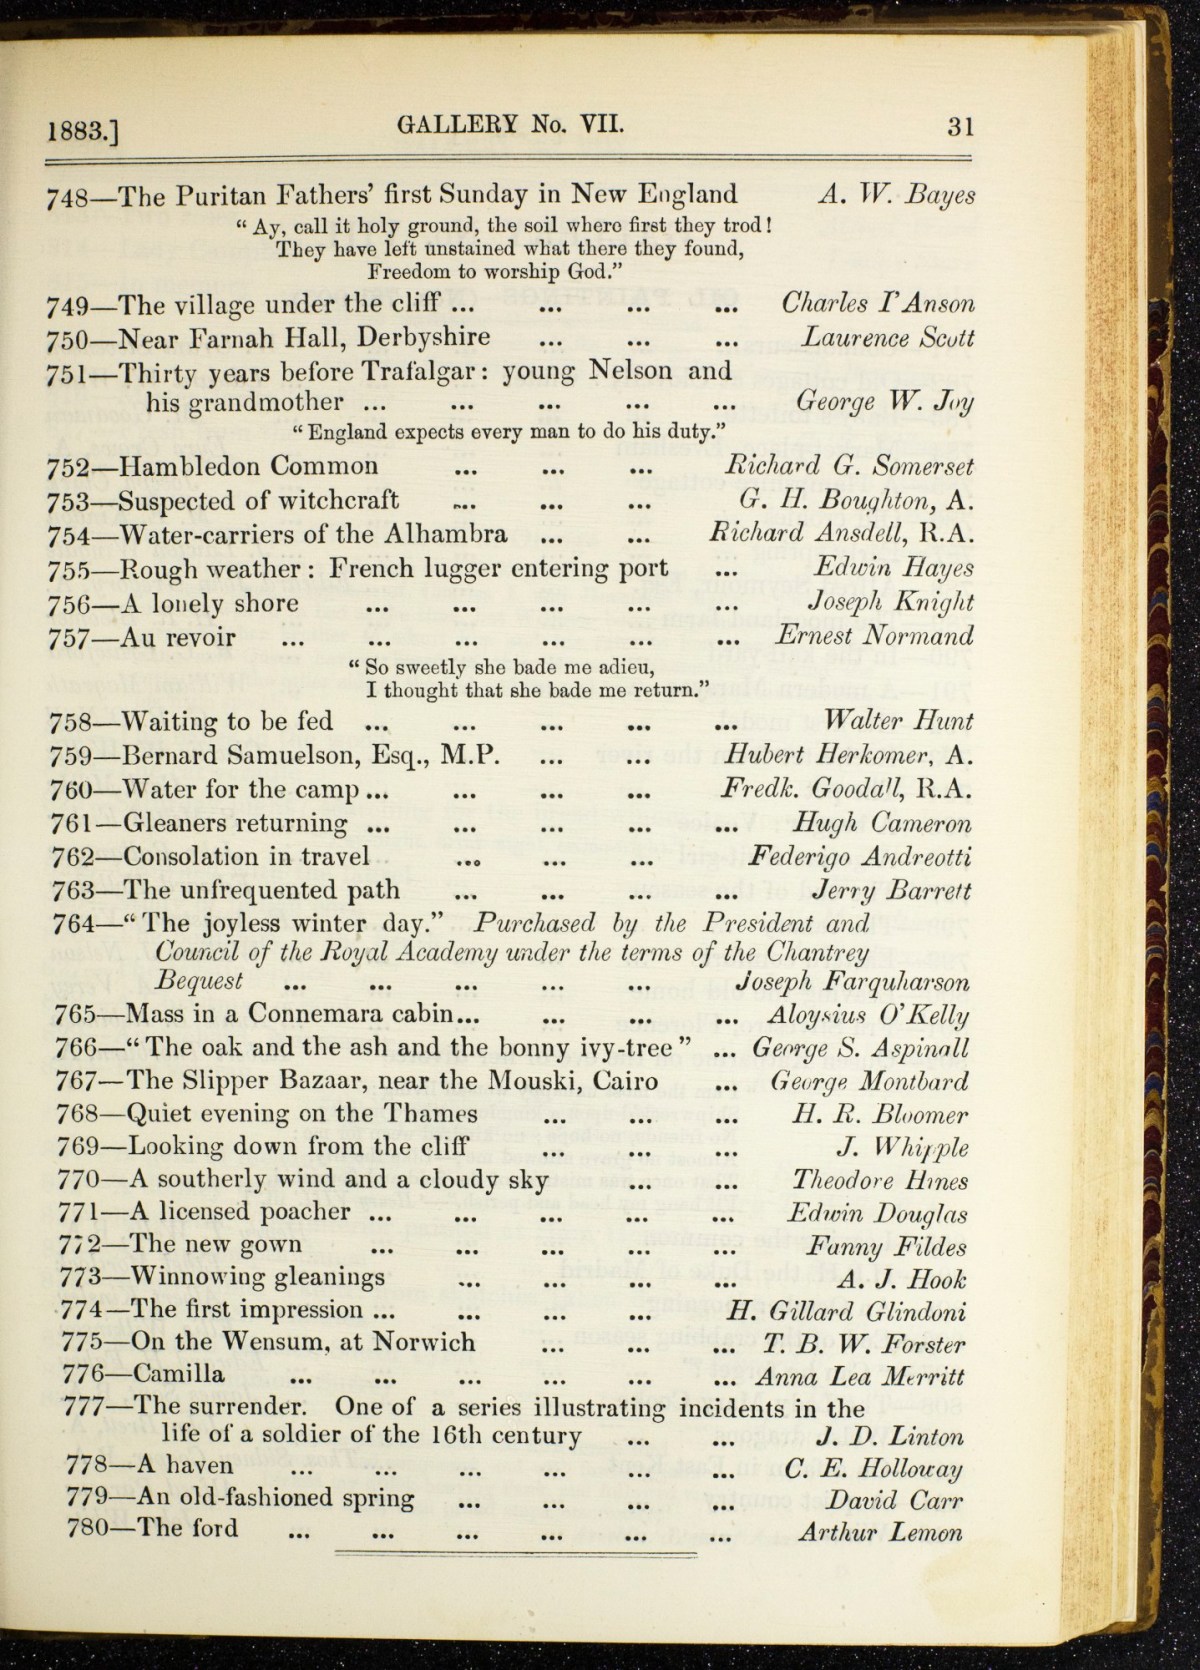 1883.] GALLERY No. VII. 31
748—The Puritan Fathers' first Sunday in New England A. W. Bayes
“ Ay, call it holy ground, the soil where first they trod!
They have left unstained what there they found,
Freedom to worship God.”
749—The village under the cliff ... ... ... ... Charles I'Anson
750—Near Farnah Hall, Derbyshire ... ... ... Laurence Scott
751—Thirty years before Trafalgar: young Nelson and
his grandmother ... ... ... ... ... George W. Joy
“ England expects every man to do his duty.”
752—Hambledon Common ... ... ... Richard G. Somerset
753—Suspected of witchcraft ... ... ... G. H. Boughton, A.
754—Water-carriers of the Alhambra ... ... Richard Ansdell, R.A.
755—Rough weather: French lugger entering port ... Edwin Hayes
756—A lonely shore ... ... ... ... ... Joseph Knight
757—Au revoir ... ... ... ... ... ... Ernest Normand
“ So sweetly she bade me adieu,
I thought that she bade me return.”
758—Waiting to be fed ... ... ... ... ... Walter Hunt
759—Bernard Samuelson, Esq., M.P. ... ... Hubert Herkomer, A.
760—Water for the camp ... ... ... ... Fredk. Goodall, R.A.
761—Gleaners returning ... ... ... ... ... Hugh Cameron
762—Consolation in travel ... ... ... Federigo Andreotti
763—The unfrequented path ... ... ... ... Jerry Barrett
764—“ The joyless winter day.” Purchased by the President and
Council of the Royal Academy under the terms of the Chantrey
Bequest ... ... ... ... ... Joseph Farquharson
765—Mass in a Connemara cabin... ... ... ... Aloysius O'Kelly
766—“ The oak and the ash and the bonny ivy-tree ” ... George S. Aspinall
767—The Slipper Bazaar, near the Mouski, Cairo ... George Montbard
768—Quiet evening on the Thames ... ... ... H. R. Bloomer
769—Looking down from the cliff ... ... ... J. Whipple
770—A southerly wind and a cloudy sky ... ... Theodore Hines
771—A licensed poacher ... ... ... ... ... Edwin Douglas
772—The new gown ... ... ... ... ... Fanny Fildes
773—Winnowing gleanings ... ... ... ... A. J. Hook
774—The first impression ... ... ... ... H. Gillard Glindoni
775—On the Wensum, at Norwich ... ... ... T. B. W. Forster
776—Camilla ... ... ... ... ... ... Anna Lea Merritt
777—The surrender. One of a series illustrating incidents in the
life of a soldier of the 16th century ... ... J. D. Linton
778—A haven ... ... ... ... ... ... C. E. Holloway
779—An old-fashioned spring ... ... ... ... David Carr
780—The ford ... ... ... ... ... ... Arthur Lemon